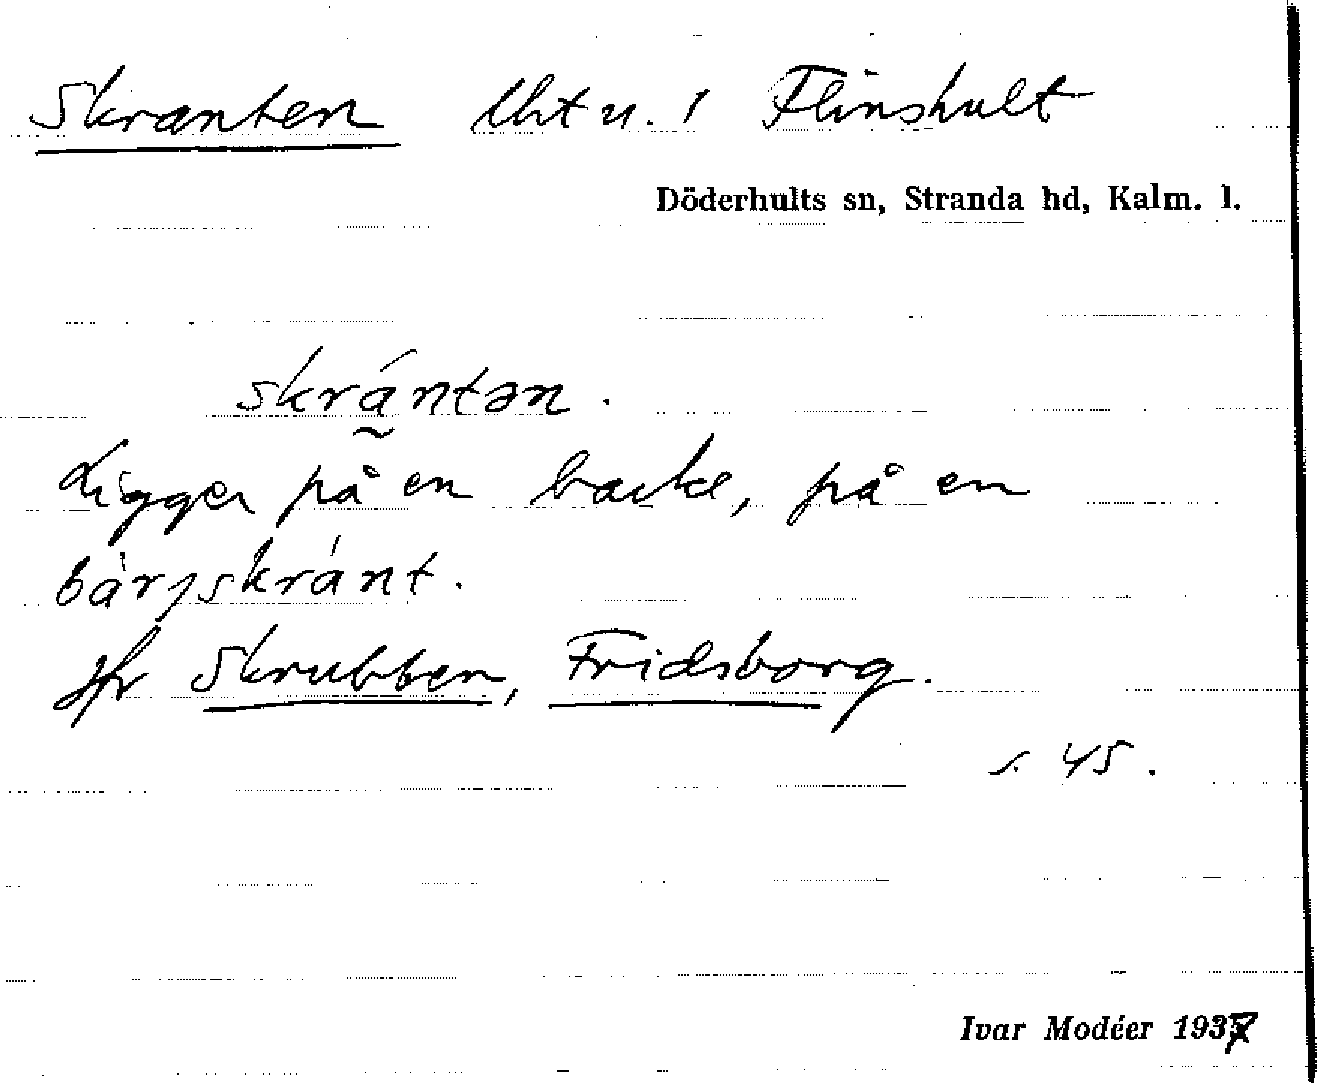 Skranten lht u. 1 Flinshult
Döderhults sn, Stranda hd, Kalm. l.
skrántən.
Ligger på en backe, på en
bàrjskránt.
Jfr Skrubben, Fridsborg.
s. 45.
Ivar Modéer 1937